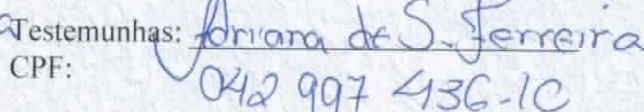 Testemunhas: Adriana de S. Ferreira
CPF: 042 997 436-10